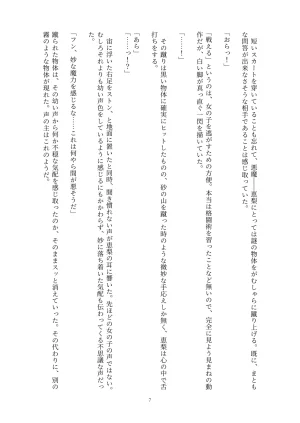 短いスカートを穿いていることも忘れて、悪魔――恵梨にとっては謎の物体をがむしゃらに蹴り上げる。既に、まとも
な問答が出来なさそうな相手であることは感じ取っていた。
「おらっ！」
「戦える」というのは、女の子を逃がすための方便。本当は格闘術を習ったことなど無いので、完全に見よう見まねの動
作だが、白い脚が真っ直ぐ一閃を描いていた。
「……！」
その蹴りは黒い物体に確実にヒットしたものの、砂の山を蹴った時のような微妙な手応えしか無く、恵梨は心の中で舌
打ちをする。
「……っ！？」
「あら」
宙に浮いた右足をストン、と地面に着いたと同時、聞き慣れない声が恵梨の耳に響いた。先ほどの女の子の声ではない。
むしろそれよりも幼い声色をしているように感じるにもかかわらず、妙に落ち着いた気配も伝わってくる不思議な声だっ
た。
「フン、妙な魔力を感じるな……これは何やら闇が臭うぞ」
蹴られた物体は、その幼い声から何か不穏な気配を感じ取ったのか、そのままスッと消えていった。その代わりに、別の
霧のような物体が現れた。声の主はこれのようだ。
7